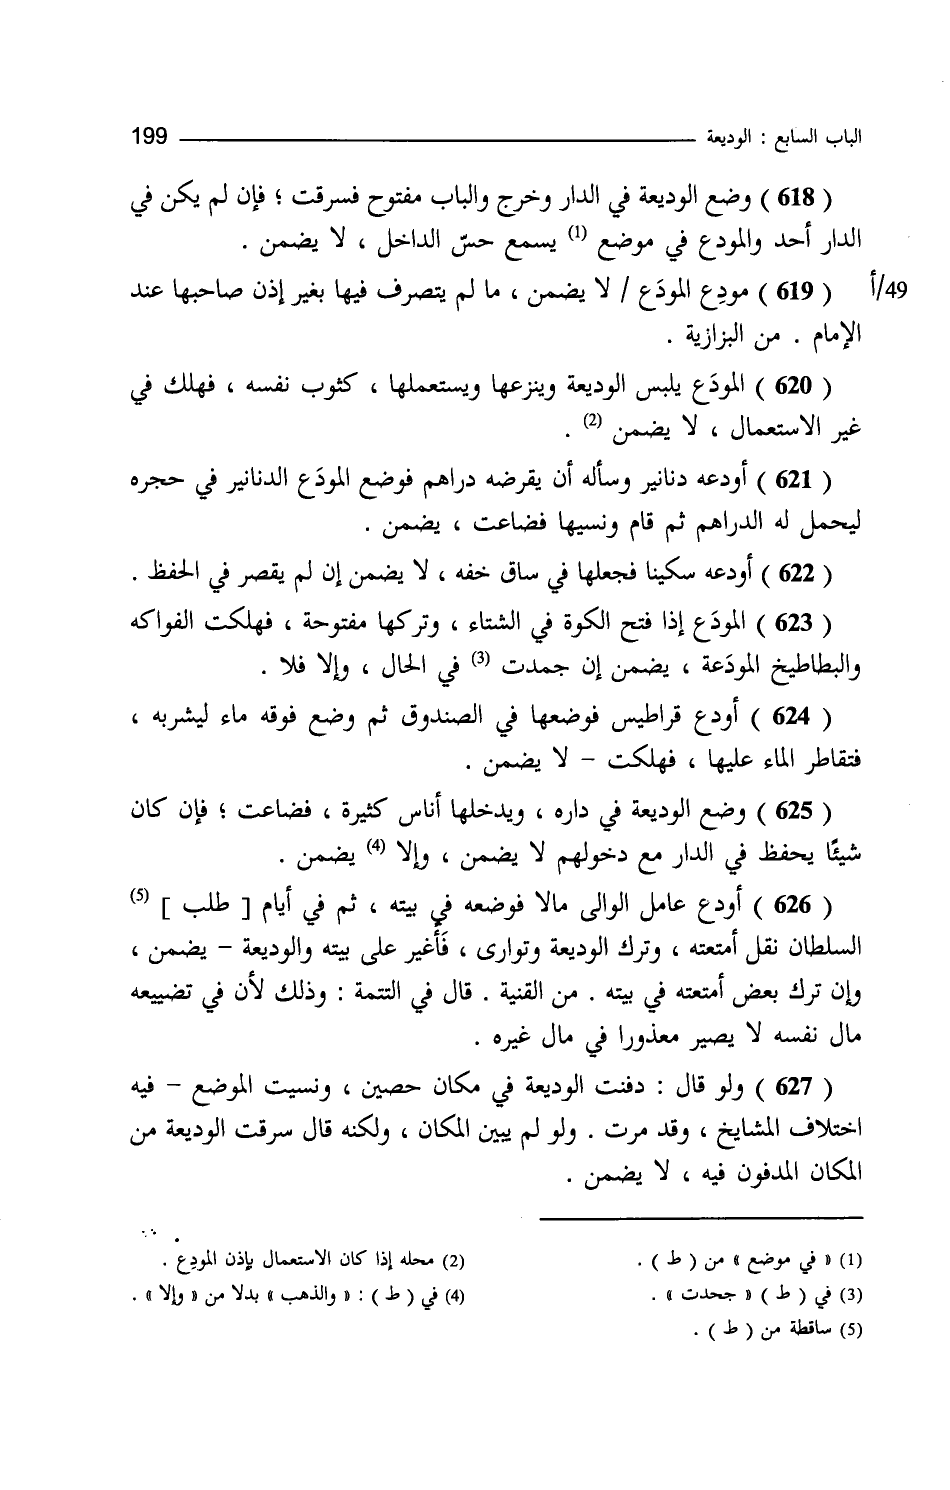 الباب السابع : الوديعة 199
( 618 ) وضع الوديعة في الدار وخرج والباب مفتوح فسرقت ؛ فإن لم يكن في
الدار أحد والمودع في موضع (1) يسمع حسّ الداخل ، لا يضمن .
49/أ ( 619 ) مودِع المودَع / لا يضمن ، ما لم يتصرف فيها بغير إذن صاحبها عند
الإمام . من البزازية .
( 620 ) المودَع يلبس الوديعة وينزعها ويستعملها ، كثوب نفسه ، فهلك في
غير الاستعمال ، لا يضمن (2) .
( 621 ) أودعه دنانير وسأله أن يقرضه دراهم فوضع المودَع الدنانير في حجره
ليحمل له الدراهم ثم قام ونسيها فضاعت ، يضمن .
( 622 ) أودعه سكينا فجعلها في ساق خفه ، لا يضمن إن لم يقصر في الحفظ .
( 623 ) المودَع إذا فتح الكوة في الشتاء ، وتركها مفتوحة ، فهلكت الفواكه
والبطاطيخ المودَعة ، يضمن إن جمدت (3) في الحال ، وإلا فلا .
( 624 ) أودع قراطيس فوضعها في الصندوق ثم وضع فوقه ماء ليشربه ،
فتقاطر الماء عليها ، فهلكت – لا يضمن .
( 625 ) وضع الوديعة في داره ، ويدخلها أناس كثيرة ، فضاعت ؛ فإن كان
شيئًا يحفظ في الدار مع دخولهم لا يضمن ، وإلا (4) يضمن .
( 626 ) أودع عامل الوالى مالا فوضعه في بيته ، ثم في أيام [ طلب ] (5)
السلطان نقل أمتعته ، وترك الوديعة وتوارى ، فَأُغير على بيته والوديعة – يضمن ،
وإن ترك بعض أمتعته في بيته . من القنية . قال في التتمة : وذلك لأن في تضييعه
مال نفسه لا يصير معذورا في مال غيره .
( 627 ) ولو قال : دفنت الوديعة في مكان حصين ، ونسيت الموضع – فيه
اختلاف المشايخ ، وقد مرت . ولو لم يبين المكان ، ولكنه قال سرقت الوديعة من
المكان المدفون فيه ، لا يضمن .
(1) « في موضع » من ( ط ) . (2) محله إذا كان الاستعمال بإذن المودِع .
(3) في ( ط ) « جحدت » . (4) في ( ط ) : « والذهب » بدلا من « وإلا » .
(5) ساقطة من ( ط ) .